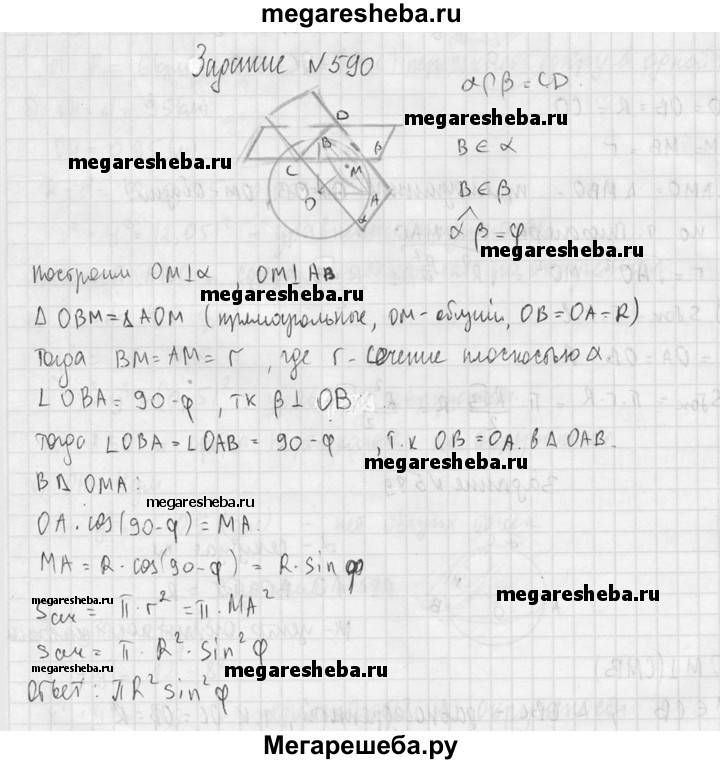 megaresheba.ru
Задание N590
α∩β = CD.
megaresheba.ru
D
B
β
megaresheba.ru
B ∈ α
C
M
O
A
α
B ∈ β
α^β = φ
megaresheba.ru
Построим OM⊥α , OM⊥AB
megaresheba.ru
Δ OBM = Δ AOM (прямоугольные, OM - общий, OB = OA = R)
Тогда BM = AM = r , где r - сечение плоскостью α.
∠ OBA = 90-φ , тк β ⊥ OB
Тогда ∠OBA = ∠OAB = 90-φ , т.к OB = OA. в Δ OAB.
megaresheba.ru
В Δ OMA:
megaresheba.ru
OA · cos(90-φ) = MA.
MA = R · cos(90-φ) = R · sin φ
megaresheba.ru
megaresheba.ru
Sсеч = π · r² = π · MA²
Sсеч = π · R² · sin² φ
megaresheba.ru
megaresheba.ru
Ответ: πR² sin² φ
Мегарешеба.ру